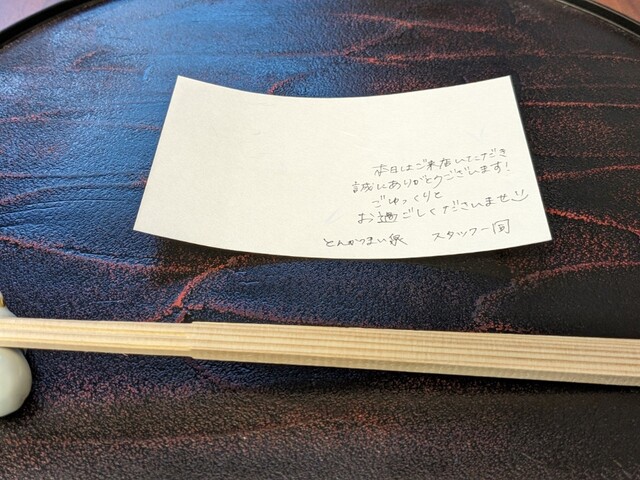 本日はご来店いただき
誠にありがとうございます!
ごゆっくりと
お過ごしくださいませ
とんかつまい泉 スタッフ一同